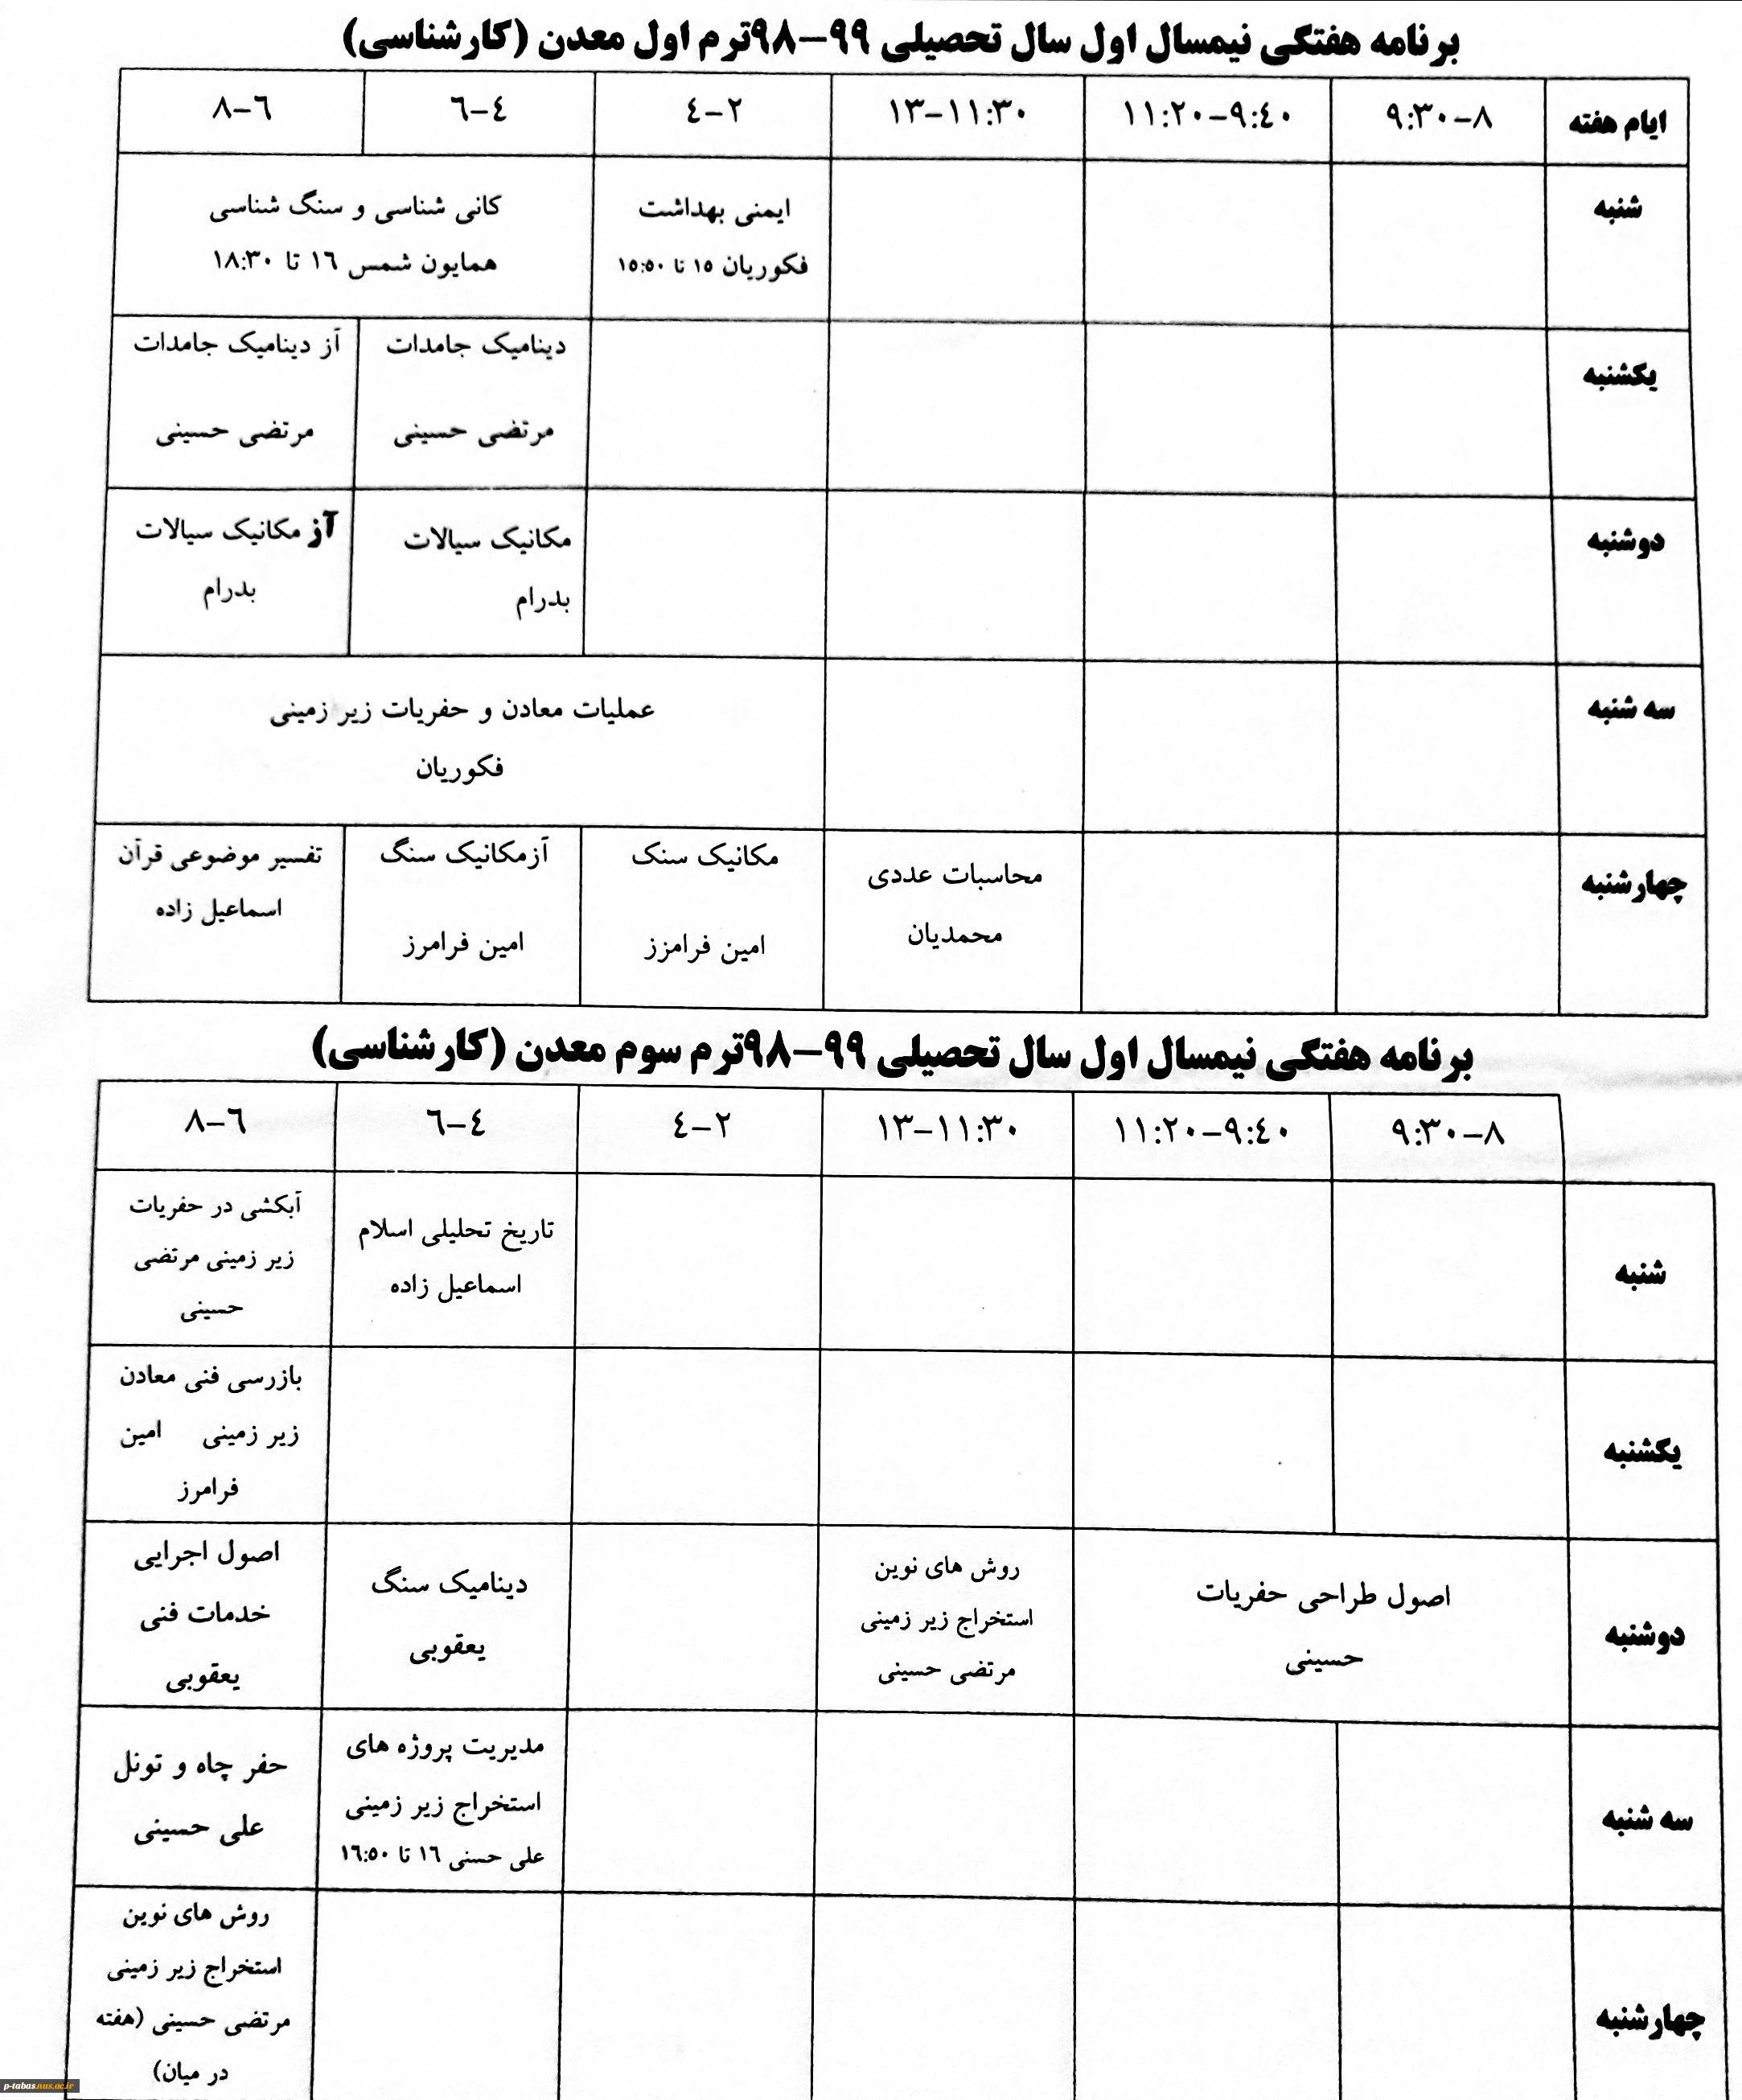 برنامه هفتگی نیمسال اول سال تحصیلی ۹۹-۹۸ترم اول معدن (کارشناسی)
ایام هفته
۸-۹:۳۰
۹:٤۰-۱۱:۲۰
۱۱:۳۰-۱۳
۲-٤
٤-٦
٦-۸
شنبه
ایمنی بهداشت
فکوریان ۱۵ تا ۱۵:۵۰
کانی شناسی و سنگ شناسی
همایون شمس ۱٦ تا ۱۸:۳۰
یکشنبه
دینامیک جامدات
مرتضی حسینی
آز دینامیک جامدات
مرتضی حسینی
دوشنبه
مکانیک سیالات
بدرام
آز مکانیک سیالات
بدرام
سه شنبه
عملیات معادن و حفریات زیر زمینی
فکوریان
چهارشنبه
محاسبات عددی
محمدیان
مکانیک سنک
امین فرامزز
آزمکانیک سنگ
امین فرامرز
تفسیر موضوعی قرآن
اسماعیل زاده
برنامه هفتگی نیمسال اول سال تحصیلی ۹۹-۹۸ترم سوم معدن (کارشناسی)
۸-۹:۳۰
۹:٤۰-۱۱:۲۰
۱۱:۳۰-۱۳
۲-٤
٤-٦
٦-۸
شنبه
تاریخ تحلیلی اسلام
اسماعیل زاده
آبکشی در حفریات
زیر زمینی مرتضی
حسینی
یکشنبه
بازرسی فنی معادن
زیر زمینی امین
فرامرز
دوشنبه
اصول طراحی حفریات
حسینی
روش های نوین
استخراج زیر زمینی
مرتضی حسینی
دینامیک سنگ
یعقوبی
اصول اجرایی
خدمات فنی
یعقوبی
سه شنبه
مدیریت پروژه های
استخراج زیر زمینی
علی حسنی ۱٦ تا ۱٦:۵۰
حفر چاه و تونل
علی حسینی
چهارشنبه
روش های نوین
استخراج زیر زمینی
مرتضی حسینی (هفته
در میان)
p-tabas.nus.ac.ir